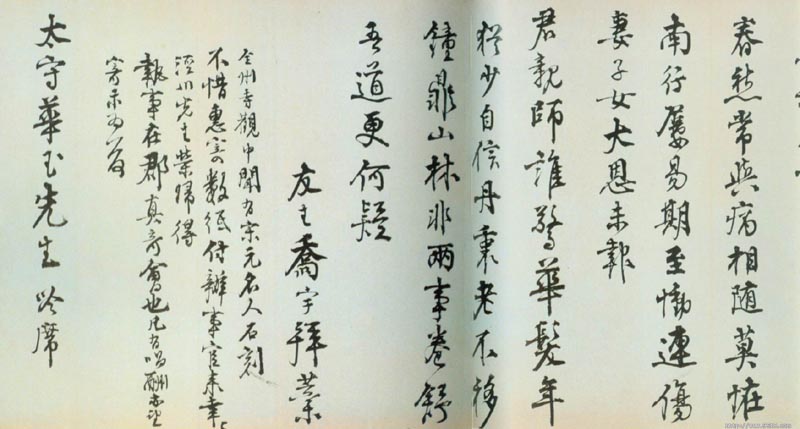 春愁常與病相隨莫怪
南行屢易期至慟連傷
妻子女大恩未報
君親師誰驚華髮年
猶少自信丹衷老不移
鐘鼎山林非兩事卷舒
吾道更何疑
友生喬宇拜業
全州寺觀中聞有宋元名人石刻
不惜惠寄數紙付辦事官來幸
涇川先生榮歸得
執事在郡真奇會也凡有唱酬
寄示為荷
太守華玉先生吟席